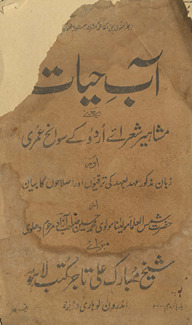 آبِ حیات
یعنے
مشاہیر شعرائے اُردو کے سوانح عمری
اور
زبان مذکور کی عہد بعہد کی ترقیوں اور اصلاحوں کا بیان
از
شمس العلما مولینا مولوی محمد حسین صاحب آزاد مرحوم دہلوی
شیخ مبارک علی تاجر کتب لاہور
اندرون لوہاری دروازہ